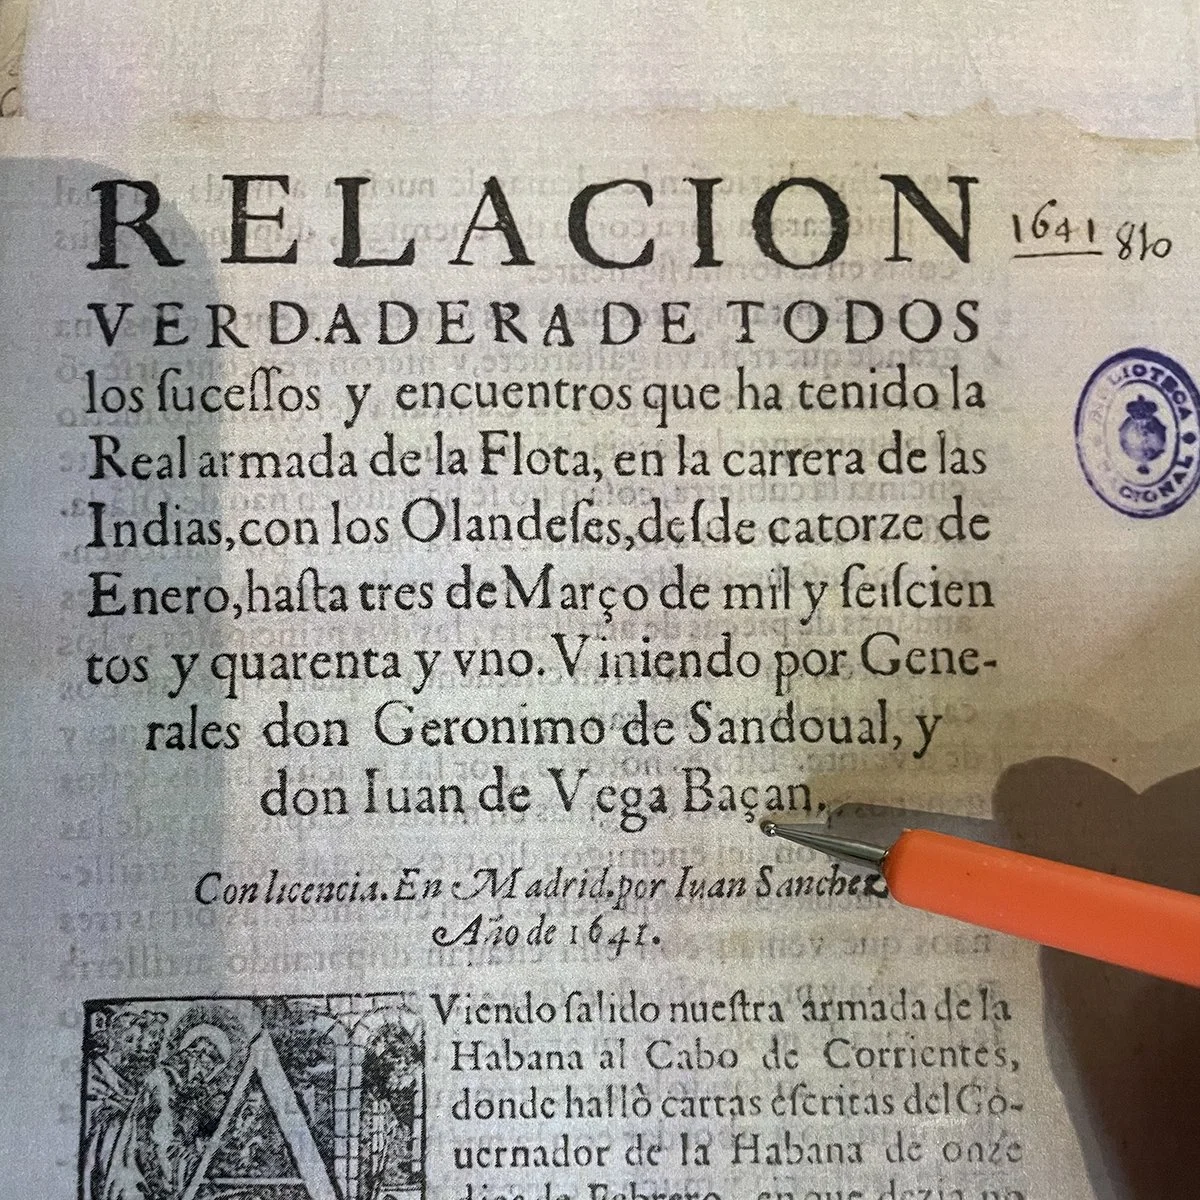 RELACION
1641 810
VERDADERA DE TODOS
los ſuceſſos y encuentros que ha tenido la
Real armada de la Flota, en la carrera de las
Indias, con los Olandeſes, deſde catorze de
Enero, haſta tres de Março de mil y ſeiſcien
tos y quarenta y vno. Viniendo por Gene-
rales don Geronimo de Sandoual, y
don Iuan de Vega Baçan.
Con licencia. En Madrid. por Iuan Sanchez
Año de 1641.
BIBLIOTECA NACIONAL
AViendo ſalido nueſtra armada de la
Habana al Cabo de Corrientes,
donde hallò cartas eſcritas del Go-
uernador de la Habana de onze
dias de Febrero, en que dezia no